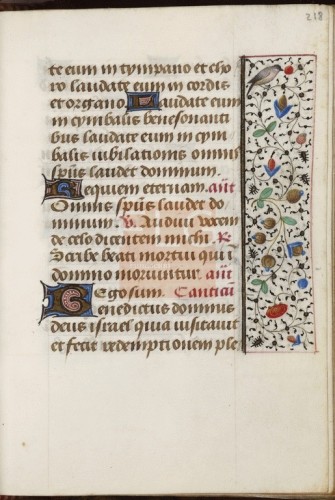 218
te eum in tympano et cho
ro laudate eum in cordis
et organo. Laudate eum
in cymbalis benesonanti
bus laudate eum in cym
balis iubilationis omnis
spūs laudet dominum.
Requiem eternam. añt
Omnis spūs laudet do
minum. V. Audivi vocem
de celo dicentem michi. R.
Scribe beati mortui qui i
domino moriuntur. añt
Ego sum. Canticū
Benedictus dominus
deus israel quia visitavit
et fecit redemptionem ple